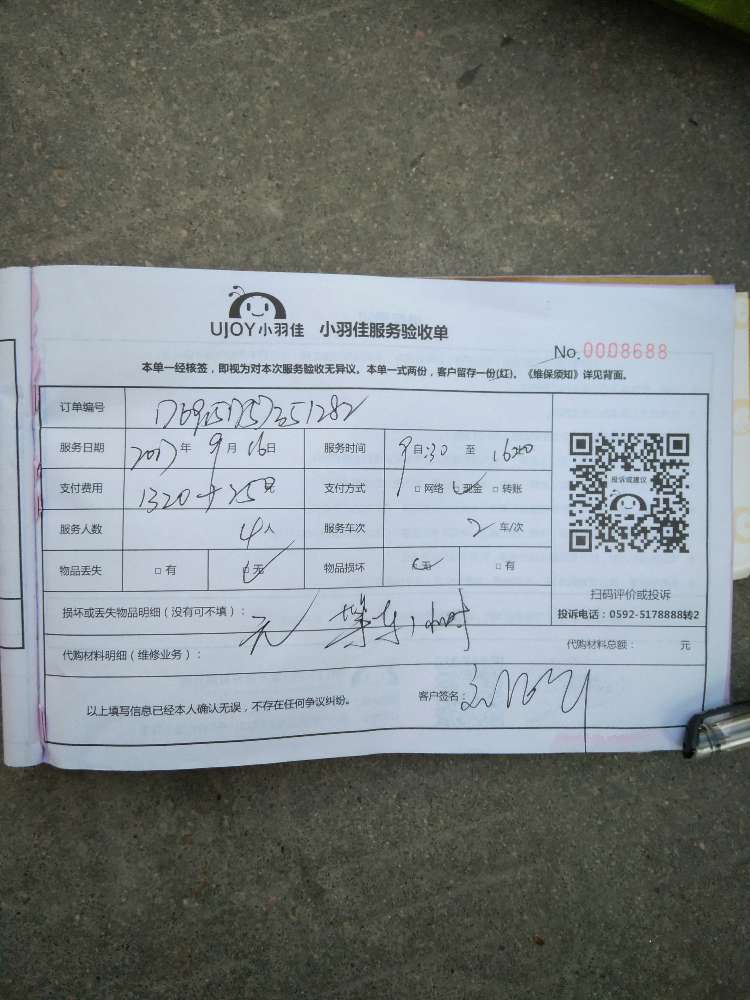 UJOY小羽佳 小羽佳服务验收单
No.0008688
本单一经核签，即视为对本次服务验收无异议。本单一式两份，客户留存一份(红)。《维保须知》详见背面。
订单编号
服务日期 2017年 9月 16日 服务时间 9:30 至 16:20
支付费用 1320+25 支付方式 □ 网络 现金 □ 转账
服务人数 4人 服务车次 2 车/次
物品丢失 □ 有 无 物品损坏 无 □ 有
投诉或建议
扫码评价或投诉
投诉电话：0592-5178888转2
损坏或丢失物品明细（没有可不填）： 无 等车1小时
代购材料明细（维修业务）： 代购材料总额： 元
以上填写信息已经本人确认无误，不存在任何争议纠纷。 客户签名：